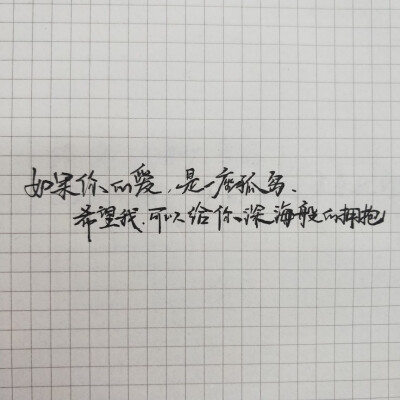 如果你的爱,是一座孤岛、
希望我.可以给你、深海般的拥抱